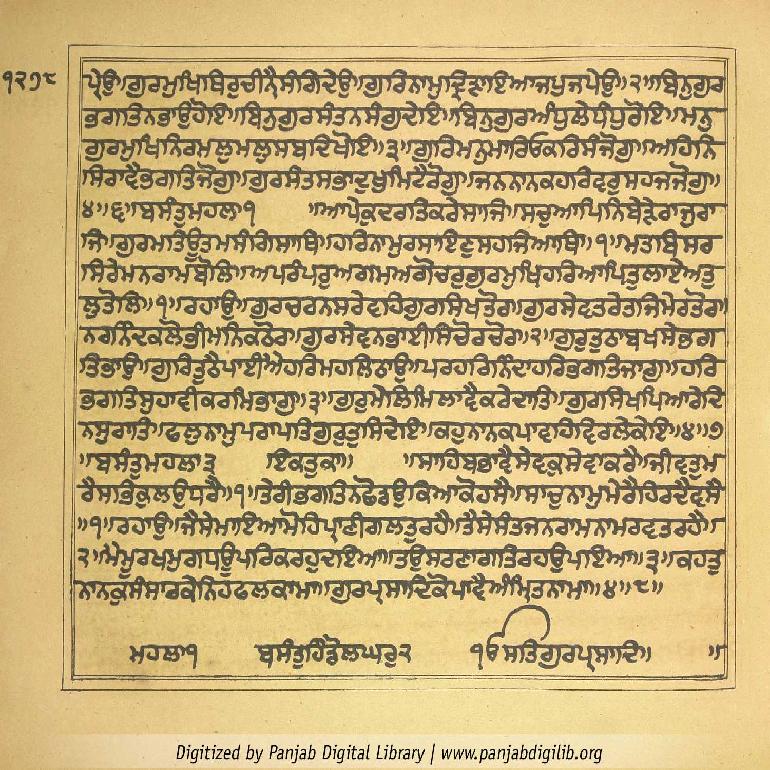 ੧੨੭੮
ਪ੍ਰੇਉ॥ਗੁਰਮੁਖਿਬਿਰੁਚੀਨੈਸੰਗਿਦੇਉ॥ਗੁਰਿਨਾਮੁਦ੍ਰਿੜਾਇਆਜਪੁਜਪੇਉ॥੨॥ਬਿਨੁਗੁਰ
ਭਗਤਿਨਭਾਉਹੋਇ॥ਬਿਨੁਗੁਰਸੰਤਨਸੰਗੁਦੇਇ॥ਬਿਨੁਗੁਰਅੰਧੁਲੇਧੰਧੁਰੋਇ॥ਮਨੁ
ਗੁਰਮੁਖਿਨਿਰਮਲੁਮਲੁਸਬਦਿਖੋਇ॥੩॥ਗੁਰਿਮਨੁਮਾਰਿਓਕਰਿਸੰਜੋਗੁ॥ਅਹਿਨਿ
ਸਿਰਾਵੈਭਗਤਿਜੋਗੁ॥ਗੁਰਸੰਤਸਭਾਦੁਖੁਮਿਟੈਰੋਗੁ॥ਜਨਨਾਨਕਹਰਿਵਰੁਸਹਜਜੋਗੁ॥
੪॥੬॥ਬਸੰਤੁਮਹਲਾ੧ ॥ਆਪੇਕੁਦਰਤਿਕਰੇਸਾਜਿ॥ਸਚੁਆਪਿਨਿਬੇੜੇਰਾਜੁਰਾ
ਜਿ॥ਗੁਰਮਤਿਊਤਮਸੰਗਿਸਾਥਿ॥ਹਰਿਨਾਮੁਰਸਾਇਣੁਸਹਜਿਆਥਿ॥੧॥ਮਤਬਿਸਰ
ਸਿਰੇਮਨਰਾਮਬੋਲਿ॥ਅਪਰੰਪਰੁਅਗਮਅਗੋਚਰੁਗੁਰਮੁਖਿਹਰਿਆਪਿਤੁਲਾਏਅਤੁ
ਲੁਤੋਲਿ॥੧॥ਰਹਾਉ॥ਗੁਰਚਰਨਸਰੇਵਹਿਗੁਰਸਿਖਤੋਰ॥ਗੁਰਸੇਵਤਰੇਤਜਿਮੇਰਤੋਰ॥
ਨਰਨਿੰਦਕਲੋਭੀਮਨਿਕਠੋਰ॥ਗੁਰਸੇਵਨਭਾਈਸਿਚੋਰਚੋਰ॥੨॥ਗੁਰੁਤੁਠਾਬਖਸੇਭਗ
ਤਿਭਾਉ॥ਗੁਰਿਤੁਠੈਪਾਈਐਹਰਿਮਹਲਿਠਾਉ॥ਪਰਹਰਿਨਿੰਦਾਹਰਿਭਗਤਿਜਾਗੁ॥ਹਰਿ
ਭਗਤਿਸੁਹਾਵੀਕਰਮਿਭਾਗੁ॥੩॥ਗੁਰੁਮੇਲਿਮਿਲਾਵੈਕਰੇਦਾਤਿ॥ਗੁਰਸਿਖਪਿਆਰੇਦਿ
ਨਸੁਰਾਤਿ॥ਫਲੁਨਾਮੁਪਰਾਪਤਿਗੁਰੁਤੁਸਿਦੇਇ॥ਕਹੁਨਾਨਕਪਾਵਹਿਵਿਰਲੇਕੇਇ॥੪॥੭
॥ਬਸੰਤੁਮਹਲਾ੩ ਇਕਤੁਕਾ॥ ॥ਸਾਹਿਬਭਾਵੈਸੇਵਕੁਸੇਵਾਕਰੈ॥ਜੀਵਤੁਮ
ਰੈਸਭਿਕੁਲਉਧਰੈ॥੧॥ਤੇਰੀਭਗਤਿਨਛੋਡਉਕਿਆਕੋਹਸੈ॥ਸਾਚੁਨਾਮੁਮੇਰੈਹਿਰਦੈਵਸੈ
॥੧॥ਰਹਾਉ॥ਜੈਸੇਮਾਇਆਮੋਹਿਪ੍ਰਾਣੀਗਲਤੁਰਹੈ॥ਤੈਸੇਸੰਤਜਨਰਾਮਨਾਮਰਵਤਰਹੈ॥
੨॥ਮੈਮੂਰਖਮੁਗਧਊਪਰਿਕਰਹੁਦਇਆ॥ਤਉਸਰਣਾਗਤਿਰਹਉਪਾਇਆ॥੩॥ਕਹਤੁ
ਨਾਨਕੁਸੰਸਾਰਕੇਨਿਹਫਲਕਾਮਾ॥ਗੁਰਪ੍ਰਸਾਦਿਕੋਪਾਵੈਅੰਮ੍ਰਿਤਨਾਮਾ॥੪॥੮॥
ਮਹਲਾ੧ ਬਸੰਤੁਹਿੰਡੋਲਘਰੁ੨ ੴਸਤਿਗੁਰਪ੍ਰਸਾਦਿ॥ ॥
Digitized by Panjab Digital Library | www.panjabdigilib.org